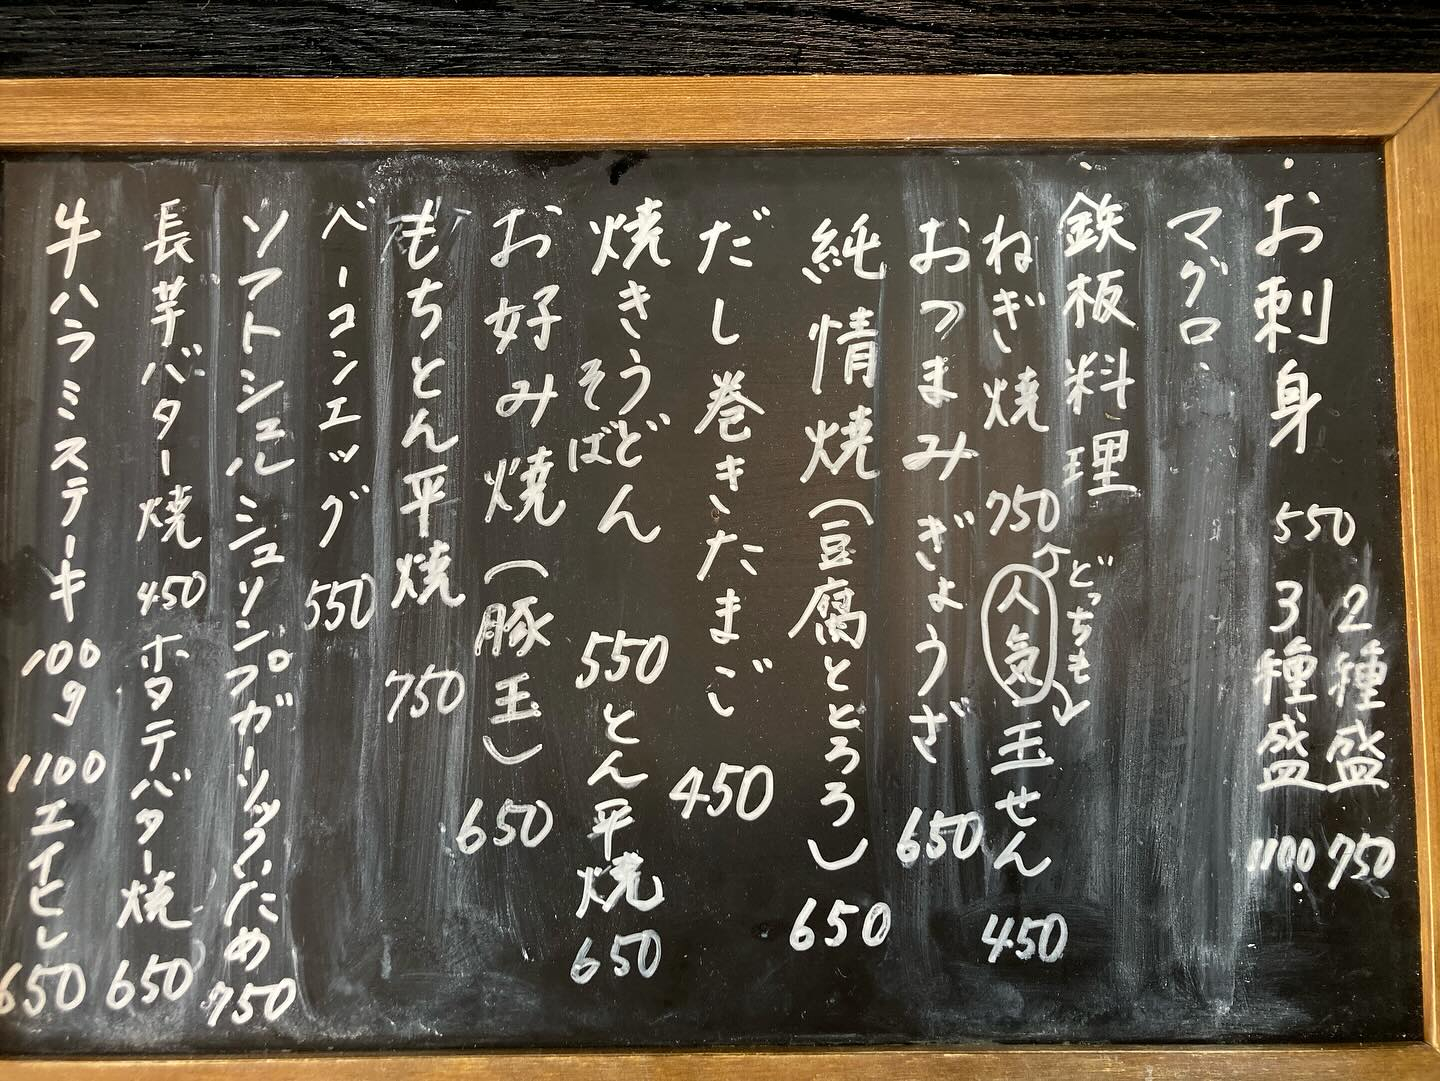 ・お刺身 550 2種盛 750
3種盛 1100.
マグロ.
・鉄板料理
ねぎ焼 750 人気 玉せん 450
どっちも
おつまみぎょうざ 650
純情焼(豆腐ととろろ) 650
だし巻きたまご 450
焼きうどん 550 とん平焼 650
そば
お好み焼(豚玉) 650
もちとん平焼 750
ベーコンエッグ 550
ソフトシェルシュリンプガーリックいため 750
長芋バター焼 450 ホタテバター焼 650
牛ハラミステーキ 100g 1100 エイヒレ 650